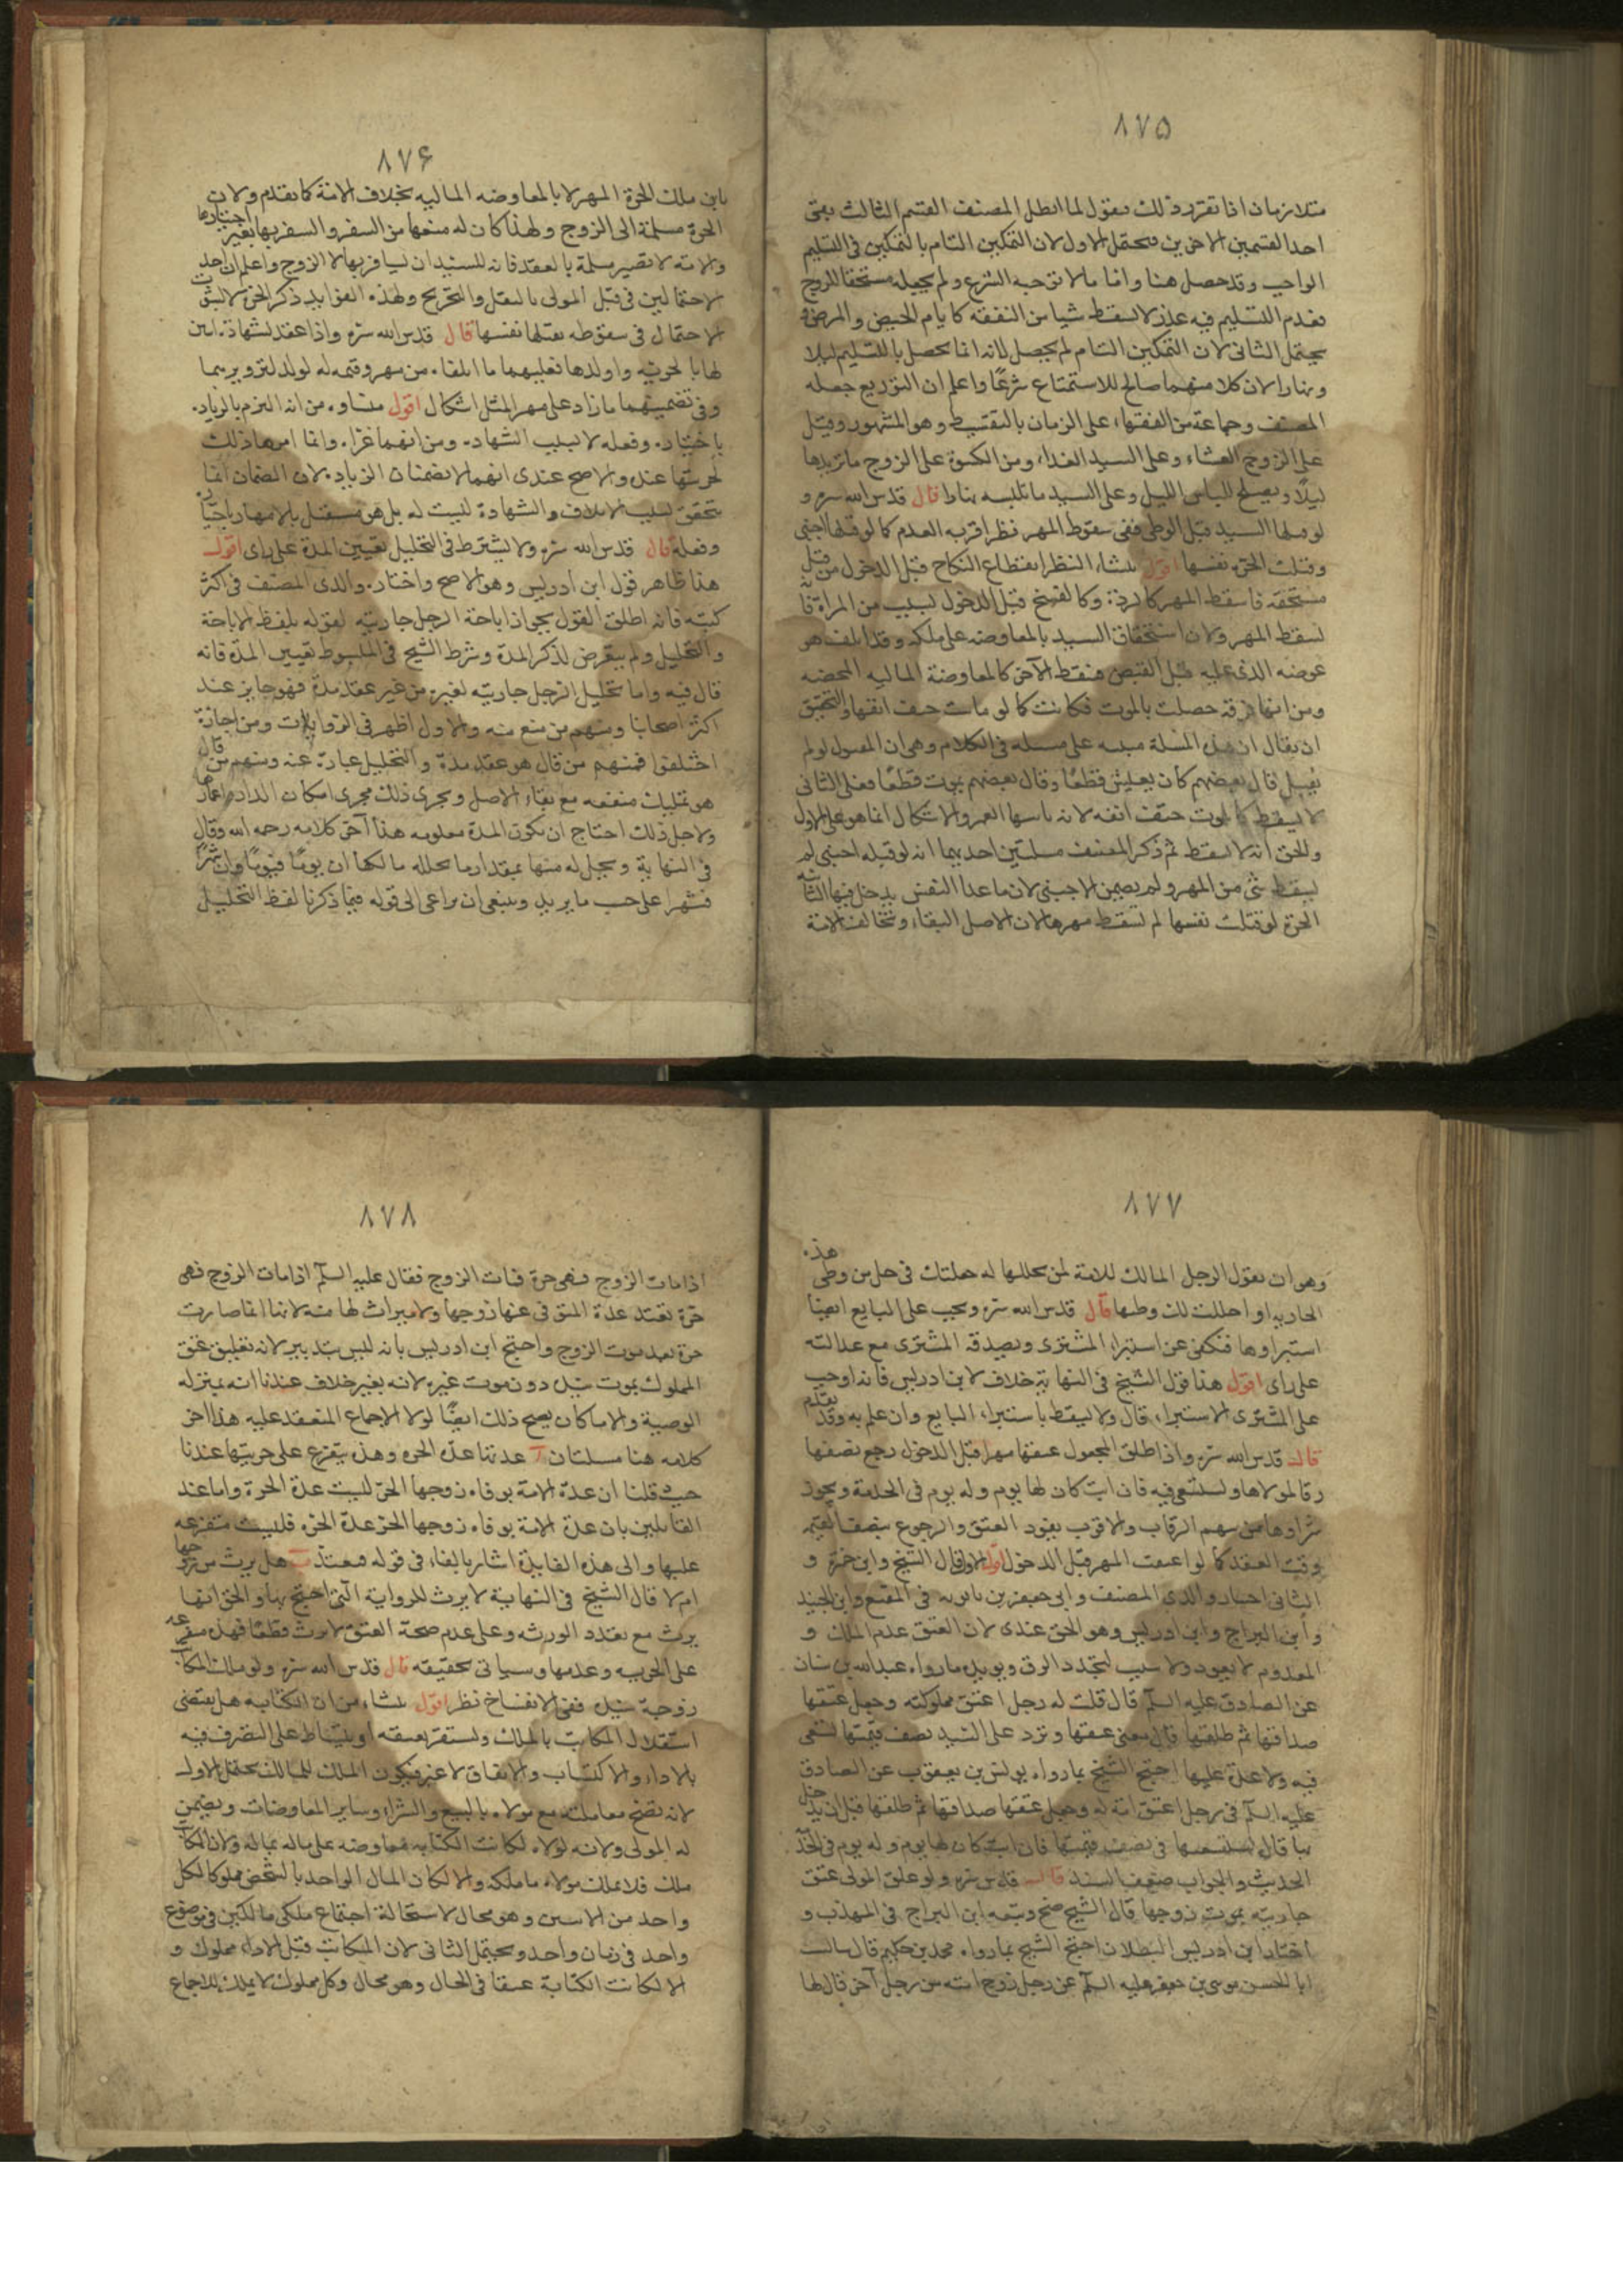 ٨٧٥
متلازمان اذا تقرر ذلك فنقول لما ابطل المصنف القسم الثالث بقى
احد القسمين الاخرين فيحتمل الاول لان التمكين التام بالتمكين فى التسليم
الواجب وقد حصل هنا واما ما لا توجبه الشرع ولم يجعله مستحقا للزوج
فعدم التسليم فيه عذر لا يسقط شيا من النفقه كايام الحيض والمرض و
يحتمل الثانى لان التمكين التام لم يحصل لانه انما يحصل بالتسليم ليلا
ونهارا لان كلا منهما صالح للاستمتاع شرعًا واعلم ان التوزيع جعله
المصنف وجماعة من الفقهاء على الزمان بالتقسيط وهو المشهور وقيل
على الزوج العشاء وعلى السيد الغداء ومن الكسوة على الزوج ما تريدها
ليلًا ويصلح للباس الليل وعلى السيد ما تلبسه نهارا قال قدس الله سره و
لو قتلها السيد قبل الوطى ففى سقوط المهر نظر اقربه العدم كما لو قتلها اجنبى
وقتلت الحرة نفسها اقول منشاء النظر انقطاع النكاح قبل الدخول من قبل
مستحقه فاسقط المهر كالردة وكالفسخ قبل الدخول لسبب من المراة فانه
لسقط المهر ولان استحقاق السيد بالمعاوضه على ملكه وقد اتلف هو
عوضه الذى عليه قبل القبض فسقط الآخر كالمعاوضة الماليه المحضه
ومن انها فرقة حصلت بالموت فكانت كما لو ماتت حتف انفها والتحقيق
ان يقال ان هذه المسلة مبنيه على مسله فى الكلام وهى ان المقتول لو لم
يقتل قال بعضهم كان يعيش قطعًا وقال بعضهم يموت قطعًا فعلى الثانى
لا يسقط كالموت حتف انفه لانه باسها العمر والاشكال انما هو على الاول
والحق انه لا يسقط ثم ذكر المصنف مسلتين احديهما انه لو قتله اجنبى لم
يسقط شئ من المهر ولم يضمن الاجنبى لان ما عدا النفس يدخل فيها الثانيه
الحرة لو قتلت نفسها لم تسقط مهرها لان الاصل البقاء وتخالف الامة
٨٧۶
بان ملك الحرة المهر لا بالمعاوضه الماليه بخلاف الامة كما تقدم ولان
الحرة مسلمة الى الزوج ولهذا كان له منعها من السفر والسفر بها بغير اختيارها
والامة لا تصير مسلمة بالعقد فانه للسيد ان يسافر بها لا الزوج واعلم ان احد
الاحتمالين فى قتل المولى بالنقل والتخريج ولهذه الفوايد ذكر الحرة لا لثبوت
الاحتمال فى سقوطه بقتلها نفسها قال قدس الله سره واذا عقد لشهادة اثنين
لها بالحريه واولدها فعليهما ما اتلفاه من مهر وقيمه له لو لد لتزويرهما
وفى تضمينهما ما زاد على مهر المثل اشكال اقول منشاوه من انه التزم بالزياده
باختياره وفعله لا بسبب الشهاده ومن انهما غراه وانما امرها ذلك
لحريتها عنده والاصح عندى انهما لا يضمنان الزياده لان الضمان انما
يتحقق بسبب الاتلاف والشهادة ليست له بل هو مستقل بالامهار باختياره
وفعله قال قدس الله سره ولا يشترط فى التحليل تعيين المدة على راى اقول
هذا ظاهر قول ابن ادريس وهو الاصح واختاره والدى المصنف فى اكثر
كتبه فانه اطلق القول بجواز اباحة الرجل جاريته لقوله بلفظ الاباحة
والتحليل ولم يتعرض لذكر المدة وشرط الشيخ فى المبسوط تعيين المدة فانه
قال فيه واما تحليل الرجل جاريته لغيره من غير عقد مدة فهو جايز عند
اكثر اصحابنا ومنهم من منع منه والاول اظهر فى الروايات ومن اجازه
اختلفوا فمنهم من قال هو عقد مدة والتحليل عبارة عنه ومنهم من قال
هو تمليك منفعه مع بقاء الاصل ويجرى ذلك مجرى اسكان الدار واعمارها
ولاجل ذلك احتاج ان يكون المدة معلومه هذا آخر كلامه رحمه الله وقال
فى النهاية ويحل له منها بمقدار ما يحلله مالكها ان يومًا فيومًا وان شهرًا
فشهرا على حسب ما يريد وينبغى ان يراعى الى قوله فيما ذكرنا لفظ التحليل
٨٧٧
وهو ان يقول الرجل المالك للامة لمن يحللها له جعلتك فى حل من وطى هذه
الجاريه او احللت لك وطيها قال قدس الله سره ويجب على البايع ايضا
استبراوها فيكفى عن استبراء المشترى ويصدقه المشترى مع عدالته
على راى اقول هذا قول الشيخ فى النهاية خلاف لابن ادريس فانه اوجب
على المشترى الاستبراء قال ولا يسقط باستبراء البايع وان علم به وقد تقدم
قال قدس الله سره واذا طلق المجعول عتقها مهرا قبل الدخول رجع نصفها
رقا لمولاها وتستسعى فيه فان ابت كان لها يوم وله يوم فى الخدمة ويجوز
شراوها من سهم الرقاب والاقرب نفوذ العتق والرجوع بنصف القيمه
وقت العقد كما لو اعتقت المهر قبل الدخول اقول الاول قال الشيخ وابن حمزة و
الثانى اختيار والدى المصنف وابى جعفر بن بابويه فى المقنع وابن الجنيد
وابن البراج وابن ادريس وهو الحق عندى لان العتق عدم الملك و
المعدوم لا يعود ولا سبب لتجدد الرق ويويده ما رواه عبد الله بن سنان
عن الصادق عليه السلم قال قلت له رجل اعتق مملوكته وجعل عتقها
صداقها ثم طلقها قال مضى عتقها وترد على السيد نصف قيمتها تسعى
فيه ولا عدة عليها احتج الشيخ بما رواه يونس بن يعقوب عن الصادق
عليه السلم فى رجل اعتق امة له وجعل عتقها صداقها ثم طلقها قبل ان يدخل
بها قال يستسعيها فى نصف قيمتها فان ابت كان لها يوم وله يوم فى الخدمة
الحديث والجواب ضعف السند قال قدس سره ولو علق المولى عتق
جاريته بموت زوجها قال الشيخ صح وتبعه ابن البراج فى المهذب و
اختار ابن ادريس البطلان احتج الشيخ بما رواه محمد بن حكيم قال سالت
ابا الحسن موسى بن جعفر عليه السلم عن رجل زوج امته من رجل آخر قال لها
٨٧٨
اذا مات الزوج فهى حرة فمات الزوج فقال عليه السلم اذا مات الزوج فهى
حرة تعتد عدة المتوفى عنها زوجها ولا ميراث لها منه لانها انما صارت
حرة بعد موت الزوج واحتج ابن ادريس بانه ليس بتدبير لانه تعليق عتق
المملوك بموت سيده دون موت غيره لانه بغير خلاف عندنا انه بمنزله
الوصية والا ما كان يصح ذلك ايضًا لولا الاجماع المنعقد عليه هذا اخر
كلامه هنا مسلتان آ عدتها عدة الحره وهذه يتفرع على حريتها عندنا
حيث قلنا ان عدة الامة بوفاه زوجها الحر ليست عدة الحرة واما عند
القائلين بان عدة الامة بوفاه زوجها الحر عدة الحره فليست متفرعه
عليها والى هذه الفايدة اشار بالفاء فى قوله فتعتد ب هل يرث من زوجها
ام لا قال الشيخ فى النهاية لا يرث للرواية التى احتج بها والحق انها
يرث مع تعدد الورثه وعلى عدم صحة العتق لا يرث قطعًا فهذه متفرعه
على الحريه وعدمها وسياتى تحقيقه قال قدس الله سره ولو ملك المكاتب
زوجة سيده ففى الانفساخ نظر اقول منشاء من ان الكتابه هل يقتضى
استقلال المكاتب بالملك وتستقر بعتقه او يتسلط على التصرف فيه
بالاداء والاكتساب والانفاق لا غير فيكون الملك للمالك يحتمل الاول
لانه تصح معاملته مع مولاه بالبيع والشراء وساير المعاوضات ويضمن
له المولى ولانه لولاه لكانت الكتابه معاوضه على ماله بماله ولان المكاتب
ملك فلا يملك مولاه ما ملكه والا لكان المال الواحد بالشخص مملوكا لكل
واحد من الاثنين وهو محال لاستحالة اجتماع ملكى مالكين فى موضوع
واحد فى زمان واحد ويحتمل الثانى لان المكاتب قبل الاداء مملوك و
الا لكانت الكتابة عتقا فى الحال وهو محال وكل مملوك لا يملك للاجماع